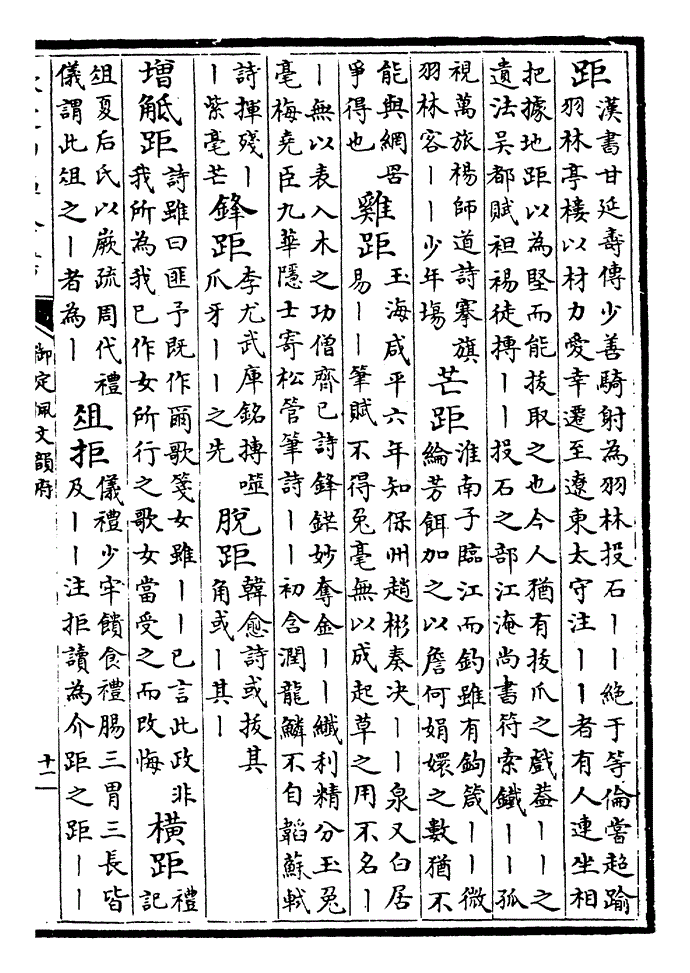 距
漢書甘延壽傳少善騎射為羽林投石丨丨絕于等倫嘗超踰
羽林亭樓以材力愛幸遷至遼東太守注丨丨者有人連坐相
把據地距以為堅而能拔取之也今人猶有拔爪之戲葢丨丨之
遺法吳都賦袒裼徒搏丨丨投石之部江淹尚書符索鐵丨丨丨孤
視萬旅楊師道詩搴旗
羽林客丨丨少年塲
芒距
淮南子臨江而釣雖有鉤箴丨丨微
綸芳餌加之以詹何娟嬛之數猶不
能與網罟
爭得也
雞距
玉海咸平六年知保州趙彬奏决丨丨泉又白居
易丨丨筆賦不得兔毫無以成起草之用不名丨
丨無以表入木之功僧齊己詩鋒鋩妙奪金丨丨纖利精分玉兔
毫梅堯臣九華隱士寄松管筆詩丨丨初含潤龍鱗不自韜蘇軾
詩揮殘丨
丨紫毫芒
鋒距
李尤武庫銘搏噬
爪牙丨丨之先
脫距
韓愈詩或拔其
角或丨其丨
增觝距
詩雖曰匪予既作爾歌箋女雖丨丨已言此政非
我所為我已作女所行之歌女當受之而改悔
橫距
禮
記
俎夏后氏以嶡疏周代禮
儀謂此俎之丨者為丨
俎拒
儀禮少牢饋食禮腸三胃三長皆
及丨丨注拒讀為介距之距丨丨
御定佩文韻府
十二